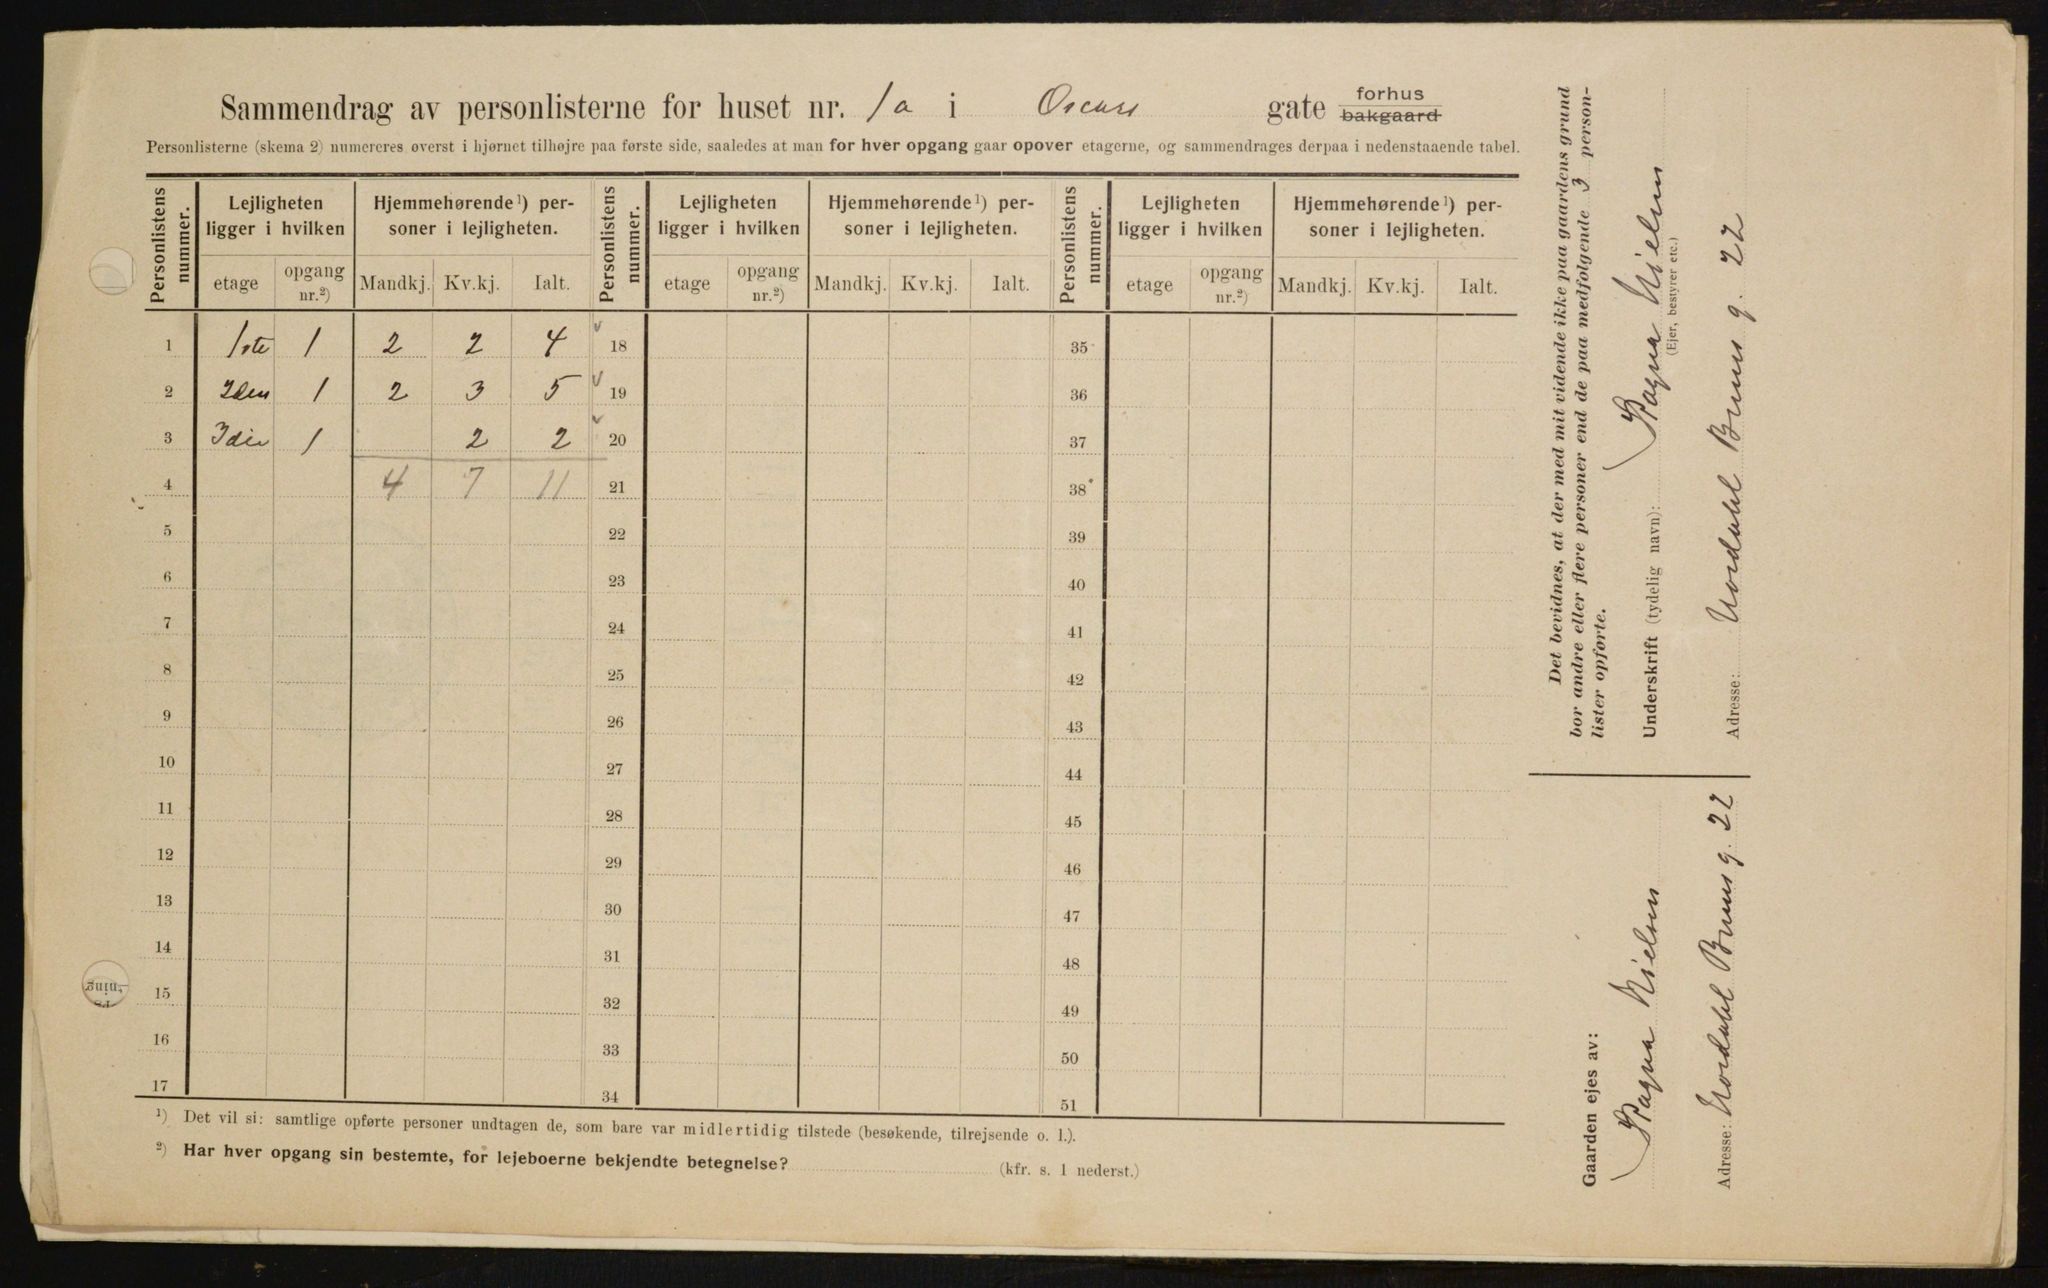 Sammendrag av personlisterne for huset nr. 1a i Oscars gate forhus
bakgaard
Personlisterne (skema 2) numereres øverst i hjørnet tilhøjre paa første side, saaledes at man for hver opgang gaar opover etagerne, og sammendrages derpaa i nedenstaaende tabel.
Personlistens nummer. Lejligheten ligger i hvilken Hjemmehørende¹) personer i lejligheten. Personlistens nummer. Lejligheten ligger i hvilken Hjemmehørende¹) personer i lejligheten. Personlistens nummer. Lejligheten ligger i hvilken Hjemmehørende¹) personer i lejligheten.
etage opgang nr.²) Mandkj. Kv.kj. Ialt. etage opgang nr.²) Mandkj. Kv.kj. Ialt. etage opgang nr.²) Mandkj. Kv.kj. Ialt.
1 1ste 1 2 2 4 18 35
2 2den 1 2 3 5 19 36
3 3die 1 2 2 20 37
4 4 7 11 21 38
5 22 39
6 23 40
7 24 41
8 25 42
9 26 43
10 27 44
11 28 45
12 29 46
13 30 47
14 31 48
15 32 49
16 33 50
17 34 51
¹) Det vil si: samtlige opførte personer undtagen de, som bare var midlertidig tilstede (besøkende, tilrejsende o. l.).
²) Har hver opgang sin bestemte, for lejeboerne bekjendte betegnelse? (kfr. s. 1 nederst.)
Det bevidnes, at der med mit vidende ikke paa gaardens grund
bor andre eller flere personer end de paa medfølgende 3 person-
lister opførte.
Underskrift (tydelig navn): Ragna Nielsen
(Ejer, bestyrer etc.)
Adresse: Nordahl Bruns g. 22
Gaarden ejes av:
Ragna Nielsen
Adresse: Nordahl Bruns g. 22